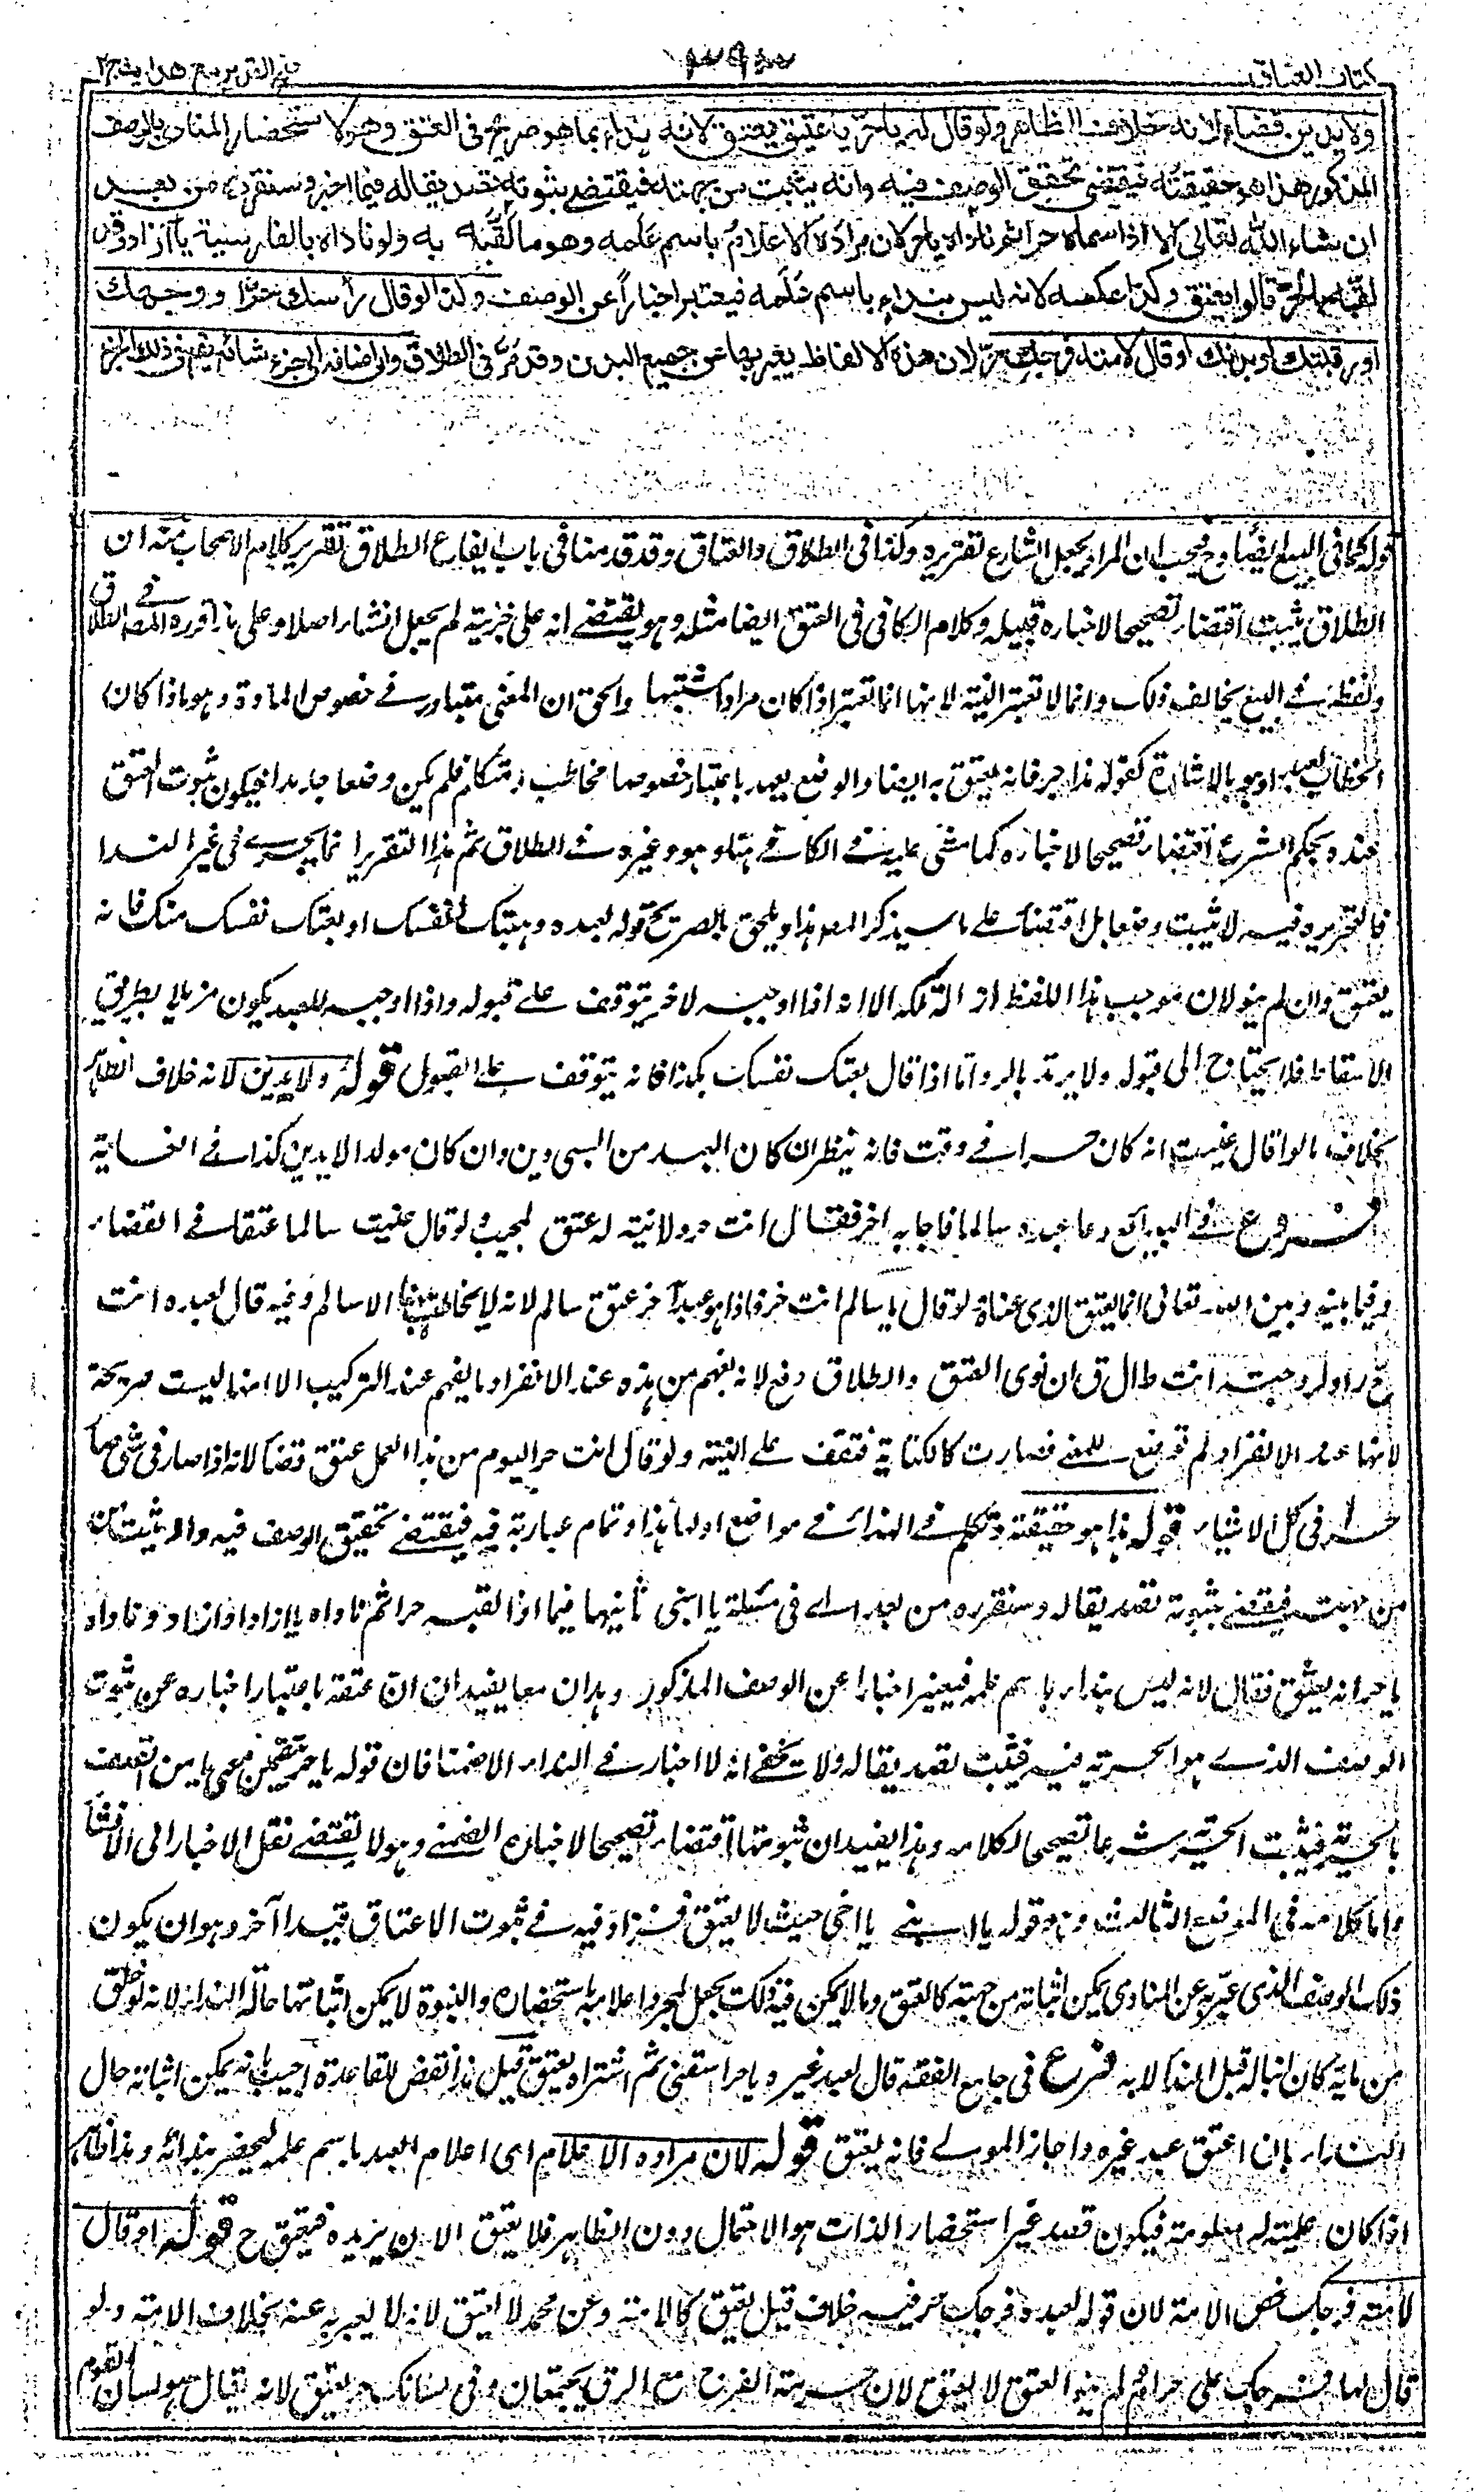 كتاب العتاق
فتح القدير مع هداية ج٢
ولا يدين قضاء لانه خلاف الظاهر ولو قال له يا حر يا عتيق يعتق لانه نداء بما هو صريح فى العتق وهو لاستحضار المنادى بالوصف
المذكور هذا هو حقيقته فيقتضى تحقق الوصف فيه وانه يثبت من جهته فيقتضى بثبوته تصديقا له فيما اخبر وسنقرره من بعد
ان شاء الله تعالى الا اذا سماه حرا ثم ناداه يا حر لان مراده الاعلام باسم علمه وهو ما لقبه به ولو ناداه بالفارسية يا آزاد وقد
لقبه بالحر قالوا يعتق وكذا عكسه لانه ليس بنداء باسم علمه فيعتبر اخبارا عن الوصف وكذا لو قال رأسك حر او وجهك
او رقبتك او بدنك او قال لامته فرجك حر لان هذه الالفاظ يعبر بها عن جميع البدن وقد مر فى الطلاق وان اضافه الى جزء شائع يقع فى ذلك الجزء
قوله كما فى البيع ايضا وح فيجب ان المراد بجعل الشارع تقريره وكذا فى الطلاق والعتاق وقد قدمنا فى باب ايقاع الطلاق تقرير كلام الاصحاب منه ان
الطلاق يثبت اقتضاء تصحيحا لاخباره قبيله وكلام الكافى فى العتق ايضا مثله وهو يقتضى انه على خبريته لم يجعل انشاء اصلا وعلى ما قرره المصنف فى الطلاق
ولفظه فى البيع يخالف ذلك وانما لا تعتبر النية لانها انما تعتبر اذا كان مرادا مشتبها والحق ان المعنى متبادر فى خصوص المادة وهو ما اذا كان
الخطاب لعبده او هو بالاشارة كقوله هذا حر فانه يعتق به ايضا والوضع يعهد باعتبار خصوصها مخاطب ومتكلم فلم يكن وضعا جديدا فيكون ثبوت العتق
عنده بحكم الشرع اقتضاء تصحيحا لاخباره كما مشى عليه فى الكافى هنا وهو وغيره فى الطلاق ثم هذا التقرير انما يجرى فى غير الندا
فالتحرير فيه لا يثبت وضعا بل اقتضاء على ما سيذكر المص هذا ويلحق بالصريح قوله لعبده وهبتك لنفسك او بعتك نفسك منك فانه
يعتق وان لم ينو لان موجب هذا اللفظ ازالة ملكه الا انه اذا اوجبه لاخر يتوقف على قبوله واذا اوجبه للعبد يكون مزيلا بطريق
الاسقاط فلا يحتاج الى قبوله ولا يرتد بالرد واما اذا قال بعتك نفسك بكذا فانه يتوقف على القبول قوله ولا يدين لانه خلاف الظاهر
بخلاف ما لو قال عنيت انه كان حرا فى وقت فانه ينظر ان كان العبد من السبى دين وان كان مولدا لا يدين كذا فى الغاية
فروع فى البدائع دعا عبده سالما فاجابه اخر فقال انت حر ولا نية له عتق المجيب ولو قال عنيت سالما عتقا فى القضاء
وفيما بينه وبين الله تعالى انما يعتق الذى عناه لو قال يا سالم انت حر فاذا هو عبد آخر عتق سالم لانه لا يخاطب هنا الا سالم وفيه قال لعبده انت
ح ر او لزوجته انت ط ا ل ق ان نوى العتق والطلاق وقع لانه يفهم من هذه عند الانفراد ما يفهم عند التركيب الا انها ليست صريحة
لانها عند الانفراد لم توضع للمعنى فصارت كالكناية فتقف على النية ولو قال انت حر اليوم من هذا العمل عتق قضاء لانه اذا صار فى شئ حرا صار
حرا فى كل الاشياء قوله هذا هو حقيقته وتكلم فى النداء فى مواضع اولها هذا وتمام عبارته فيه فيقتضى تحقيق الوصف فيه وانه يثبت من
من جهته فيقضى بثبوته تصديقا له وسنقرره من بعد اى فى مسئلة يا ابنى ثانيها فيما اذا لقبه حرا ثم ناداه يا ازاد او ازاد وناداه
يا حر انه يعتق فقال لانه ليس بنداء باسم علمه فيعتبر اخبارا عن الوصف المذكور وهذان معا يفيدان ان عتقه باعتبار اخباره عن ثبوت
الوصف الذى هو الحرية فيه فيثبت تصديقا له ولا يخفى انه لا اخبار فى النداء الا ضمنا فان قوله يا حر يتضمن معنى يا من اتصف
بالحرية فيثبت الحرية شرعا تصحيحا لكلامه وهذا يفيد ان ثبوتها اقتضاء تصحيحا لاخباره الضمنى وهو لا يقتضى نقل الاخبار الى الانشاء
واما كلامه فى الموضع الثالث وهو قوله يا ابنى يا اخى حيث لا يعتق فزاد فيه فى ثبوت الاعتاق قيدا آخر وهو ان يكون
ذلك الوصف الذى عبر به عن المنادى يمكن اثباته من جهته كالعتق وما لا يمكن فيه ذلك يجعل لمجرد اعلامه باستحضاره والبنوة لا يمكن اثباتها حالة النداء لانه لو تخلق
من مائه كان ابنا له قبل النداء لا به فرع فى جامع الفقه قال لعبد غيره يا حر اسقنى ثم اشتراه يعتق قيل هذا نقض للقاعدة اجيب بانه يمكن اثباته حال
النداء بان اعتق عبد غيره واجاز المولى فانه يعتق قوله لان مراده الاعلام اى اعلام العبد باسم علمه ليحضر بندائه وهذا ظاهر
اذا كان علميته له معلومة فيكون قصد غير استحضار الذات هو الاحتمال دون الظاهر فلا يعتق الا ان يريده فيعتق ح قوله او قال
لامته فرجك خص الامة لان قوله لعبده فرجك حر فيه خلاف قيل يعتق كالامة وعن محمد لا يعتق لانه لا يعبر به عنه بخلاف الامة ولو
قال لها فرجك على حرام لم ينو العتق لا يعتق لان حرمة الفرج مع الرق يجتمعان وفى لسانك حر يعتق لانه يقال هو لسان القوم